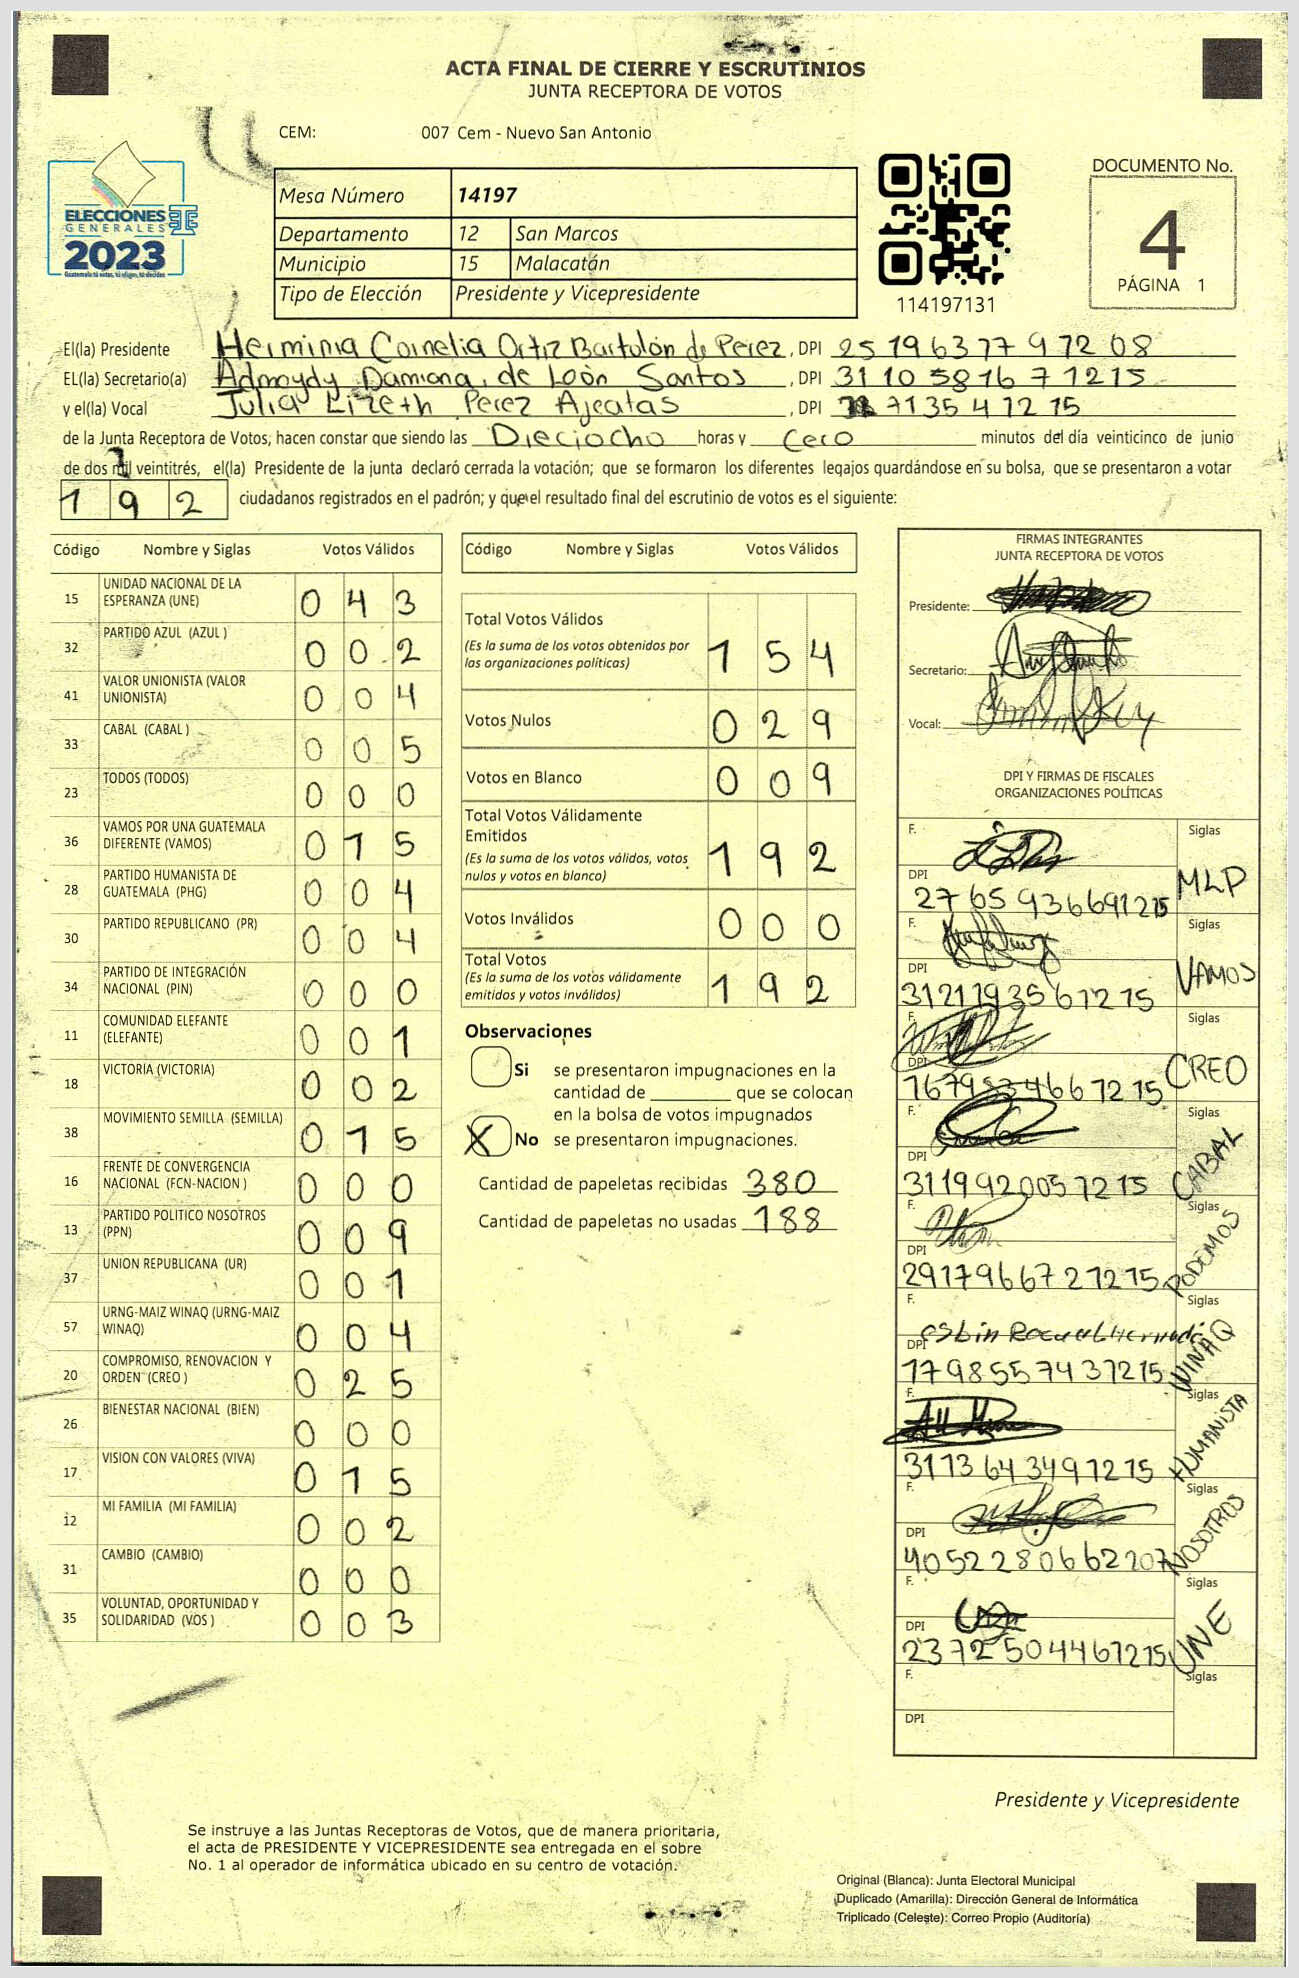 ACTA FINAL DE CIERRE Y ESCRUTINIOS
JUNTA RECEPTORA DE VOTOS
CEM: 007 Cem - Nuevo San Antonio
ELECCIONES
GENERALES
2023
Guatemala tú votas, tú eliges, tú decides
Mesa Número 14197
Departamento 12 San Marcos
Municipio 15 Malacatán
Tipo de Elección Presidente y Vicepresidente
114197131
DOCUMENTO No.
4
PÁGINA 1
El(la) Presidente Herminia Cornelia Ortiz Bartolón de Perez, DPI 2519637797208
EL(la) Secretario(a) Admoydy Damiana de León Santos, DPI 3110581671215
y el(la) Vocal Julia Lizeth Perez Ajcatas, DPI 713541215
de la Junta Receptora de Votos, hacen constar que siendo las Dieciocho horas y Cero minutos del día veinticinco de junio
de dos mil veintitrés, el(la) Presidente de la junta declaró cerrada la votación; que se formaron los diferentes legajos quardándose en su bolsa, que se presentaron a votar
192 ciudadanos registrados en el padrón; y que el resultado final del escrutinio de votos es el siguiente:
Código Nombre y Siglas Votos Válidos
15 UNIDAD NACIONAL DE LA ESPERANZA (UNE) 043
32 PARTIDO AZUL (AZUL ) 002
41 VALOR UNIONISTA (VALOR UNIONISTA) 004
33 CABAL (CABAL ) 005
23 TODOS (TODOS) 000
36 VAMOS POR UNA GUATEMALA DIFERENTE (VAMOS) 015
28 PARTIDO HUMANISTA DE GUATEMALA (PHG) 004
30 PARTIDO REPUBLICANO (PR) 004
34 PARTIDO DE INTEGRACIÓN NACIONAL (PIN) 000
11 COMUNIDAD ELEFANTE (ELEFANTE) 001
18 VICTORIA (VICTORIA) 002
38 MOVIMIENTO SEMILLA (SEMILLA) 015
16 FRENTE DE CONVERGENCIA NACIONAL (FCN-NACION ) 000
13 PARTIDO POLITICO NOSOTROS (PPN) 009
37 UNION REPUBLICANA (UR) 001
57 URNG-MAIZ WINAQ (URNG-MAIZ WINAQ) 004
20 COMPROMISO, RENOVACION Y ORDEN (CREO ) 025
26 BIENESTAR NACIONAL (BIEN) 000
17 VISION CON VALORES (VIVA) 015
12 MI FAMILIA (MI FAMILIA) 002
31 CAMBIO (CAMBIO) 000
35 VOLUNTAD, OPORTUNIDAD Y SOLIDARIDAD (VOS ) 003
Código Nombre y Siglas Votos Válidos
Total Votos Válidos
(Es la suma de los votos obtenidos por
las organizaciones políticas) 154
Votos Nulos 029
Votos en Blanco 009
Total Votos Válidamente
Emitidos
(Es la suma de los votos válidos, votos
nulos y votos en blanco) 192
Votos Inválidos 000
Total Votos
(Es la suma de los votos válidamente
emitidos y votos inválidos) 192
Observaciones
Si se presentaron impugnaciones en la
cantidad de ________ que se colocan
en la bolsa de votos impugnados
X No se presentaron impugnaciones.
Cantidad de papeletas recibidas 380
Cantidad de papeletas no usadas 188
FIRMAS INTEGRANTES
JUNTA RECEPTORA DE VOTOS
Presidente:
Secretario:
Vocal:
DPI Y FIRMAS DE FISCALES
ORGANIZACIONES POLÍTICAS
F. Siglas
DPI 2765936691215 MLP
F. Siglas
DPI 3121193561215 VAMOS
F. Siglas
DPI 1679834661215 CREO
F. Siglas
DPI 3119920051215 CABAL
F. Siglas
DPI 2917966721215 PODEMOS
F. Siglas
DPI 1798557431215 WINAQ
F. Siglas
3113643491215 HUMANISTA
F. Siglas
DPI 4052280662207 NOSOTROS
F. Siglas
DPI 2372504461215 UNE
F. Siglas
DPI
Presidente y Vicepresidente
Se instruye a las Juntas Receptoras de Votos, que de manera prioritaria,
el acta de PRESIDENTE Y VICEPRESIDENTE sea entregada en el sobre
No. 1 al operador de informática ubicado en su centro de votación.
Original (Blanca): Junta Electoral Municipal
Duplicado (Amarilla): Dirección General de Informática
Triplicado (Celeste): Correo Propio (Auditoría)